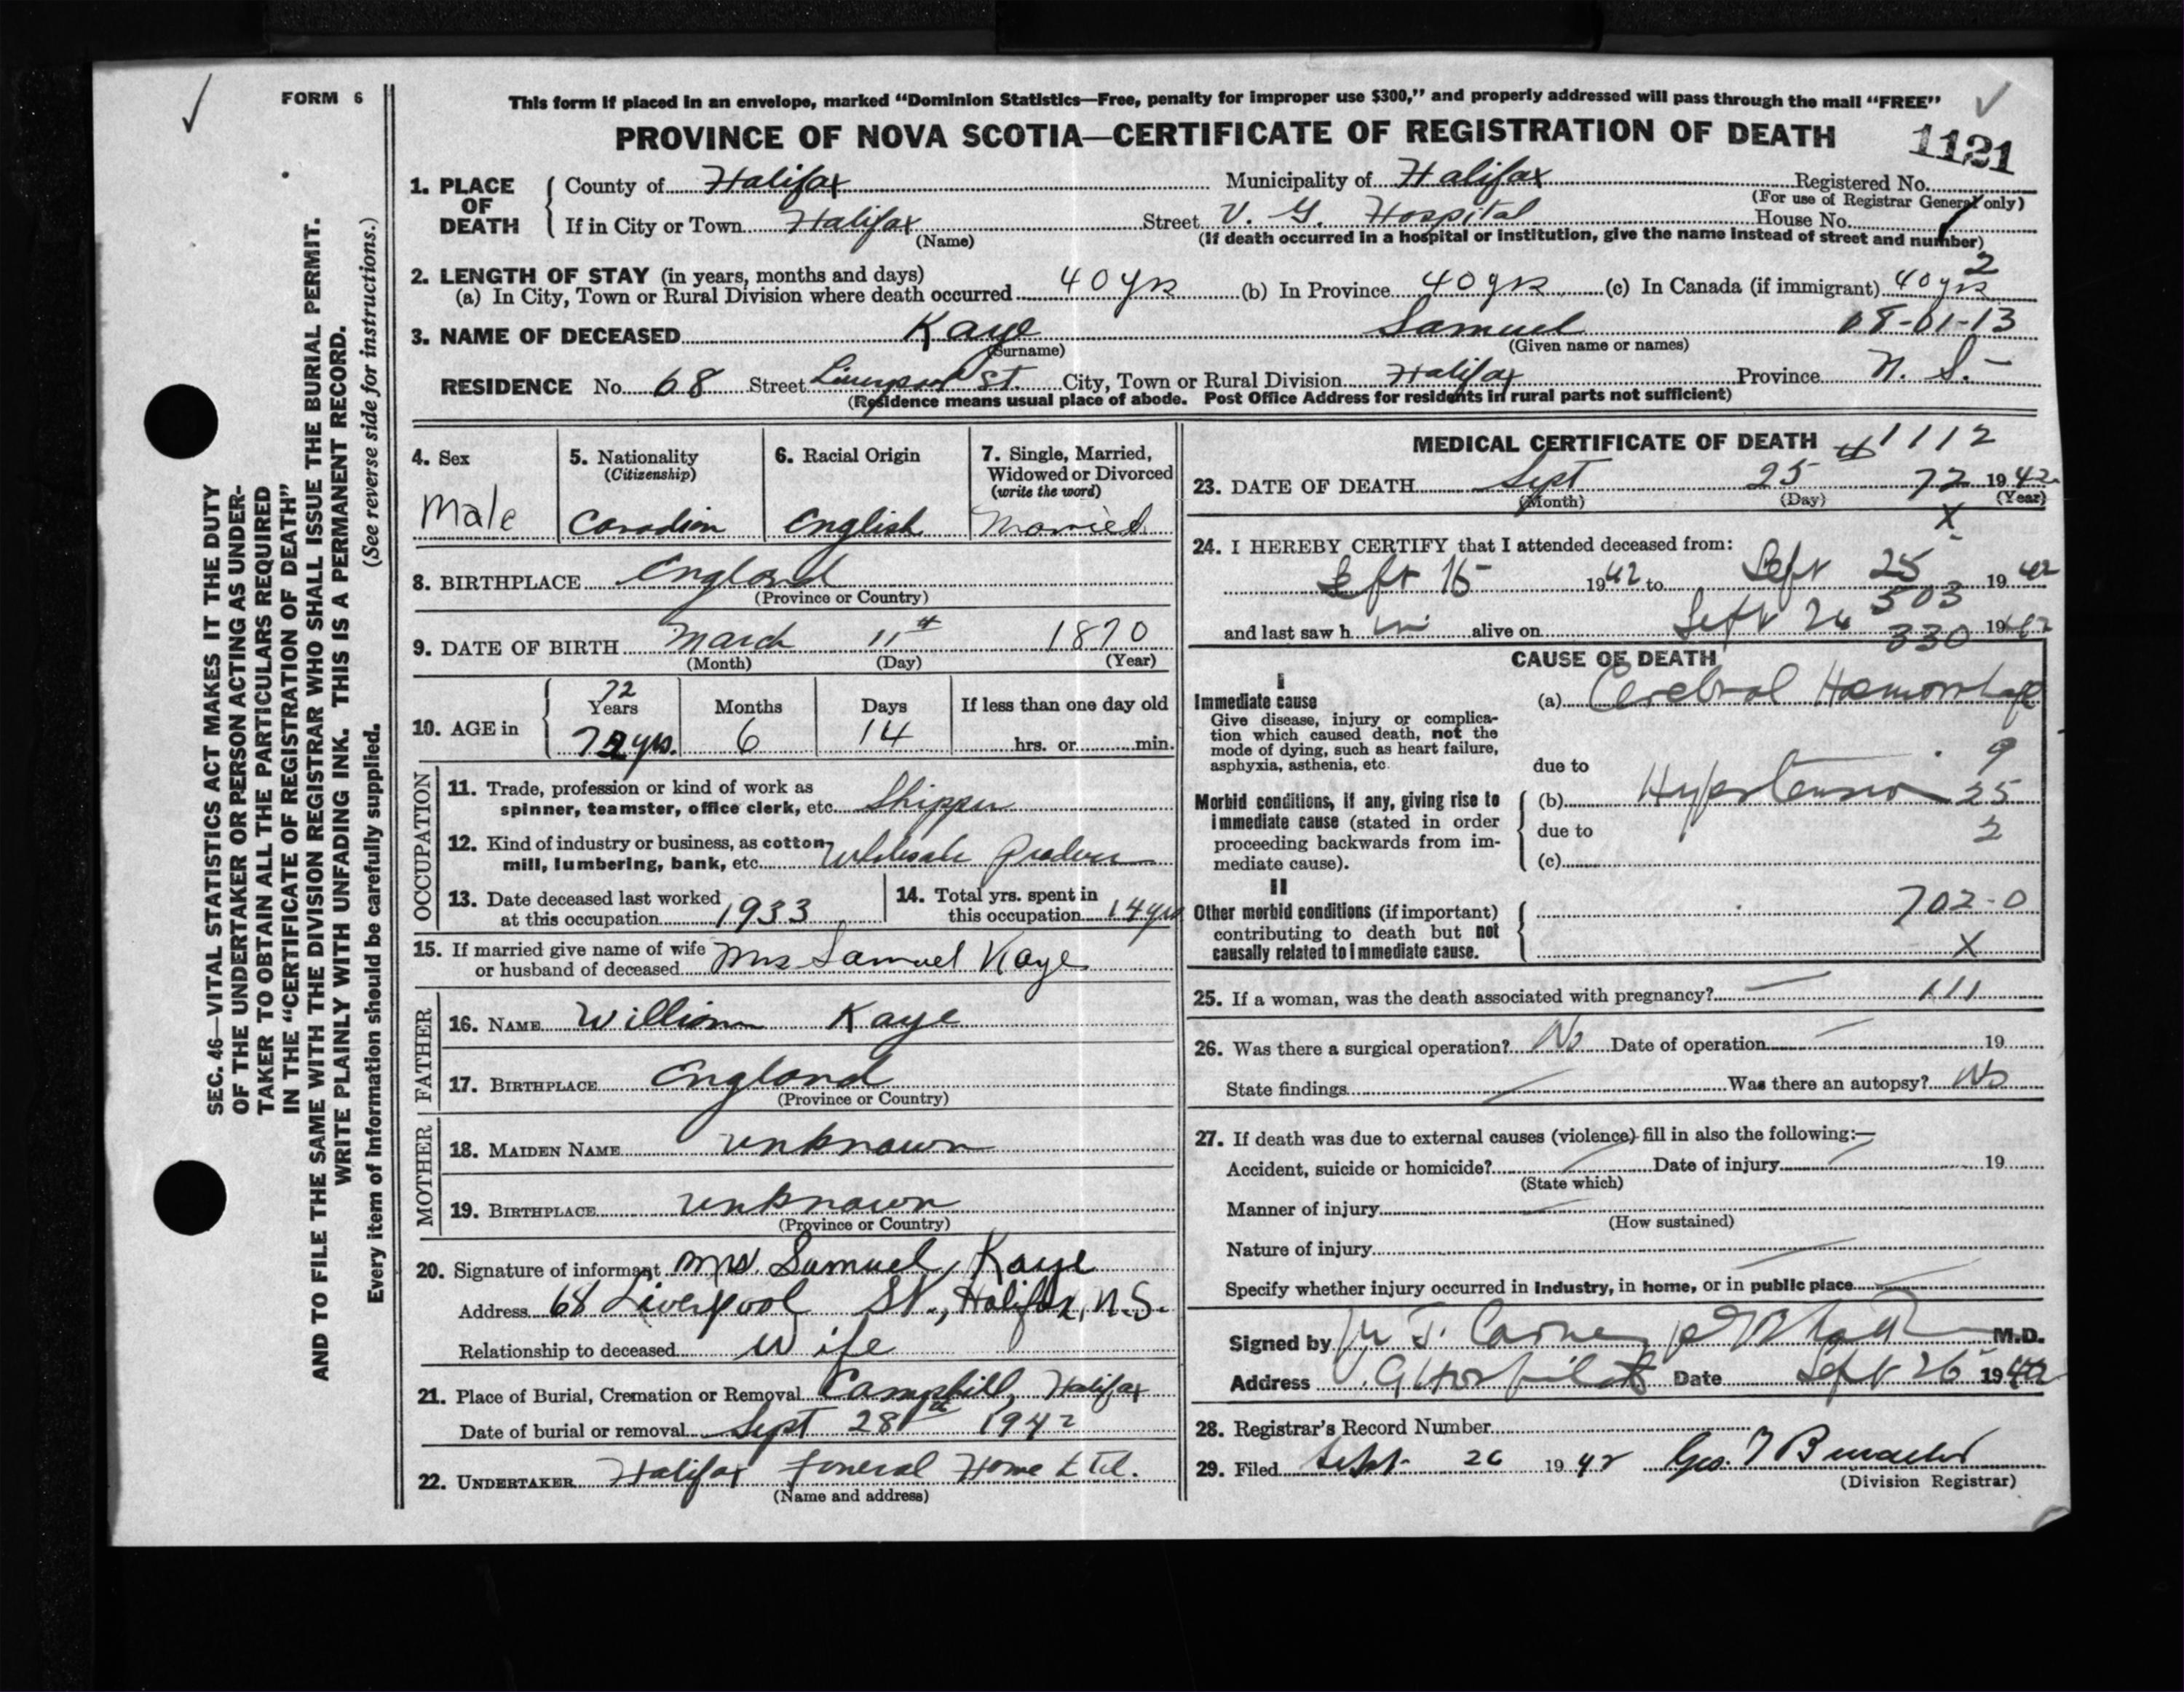 FORM 6
This form if placed in an envelope, marked “Dominion Statistics—Free, penalty for improper use $300,” and properly addressed will pass through the mail “FREE”
PROVINCE OF NOVA SCOTIA—CERTIFICATE OF REGISTRATION OF DEATH
1121
1. PLACE OF DEATH
County of Halifax Municipality of Halifax Registered No.
(For use of Registrar General only)
If in City or Town Halifax Street V. G. Hospital House No.
(Name) (If death occurred in a hospital or institution, give the name instead of street and number)
1
2
2. LENGTH OF STAY (in years, months and days)
(a) In City, Town or Rural Division where death occurred 40 yrs (b) In Province 40 yrs (c) In Canada (if immigrant) 40 yrs
3. NAME OF DECEASED Kaye Samuel 08-01-13
(Surname) (Given name or names)
RESIDENCE No. 68 Street Liverpool St. City, Town or Rural Division Halifax Province N. S.
(Residence means usual place of abode. Post Office Address for residents in rural parts not sufficient)
4. Sex
Male
5. Nationality
(Citizenship)
Canadian
6. Racial Origin
English
7. Single, Married,
Widowed or Divorced
(write the word)
Married
8. BIRTHPLACE England
(Province or Country)
9. DATE OF BIRTH March 11th 1870
(Month) (Day) (Year)
10. AGE in
72
Years Months Days If less than one day old
72 yrs. 6 14 hrs. or min.
OCCUPATION
11. Trade, profession or kind of work as
spinner, teamster, office clerk, etc. Shipper
12. Kind of industry or business, as cotton
mill, lumbering, bank, etc. Wholesale Produce
13. Date deceased last worked
at this occupation 1933
14. Total yrs. spent in
this occupation 14 yrs
15. If married give name of wife
or husband of deceased Mrs Samuel Kaye
FATHER
16. NAME William Kaye
17. BIRTHPLACE England
(Province or Country)
MOTHER
18. MAIDEN NAME unknown
19. BIRTHPLACE unknown
(Province or Country)
20. Signature of informant Mrs. Samuel Kaye
Address 68 Liverpool St., Halifax, N.S.
Relationship to deceased Wife
21. Place of Burial, Cremation or Removal Camphill, Halifax
Date of burial or removal Sept 28th 1942
22. UNDERTAKER Halifax Funeral Home Ltd.
(Name and address)
MEDICAL CERTIFICATE OF DEATH # 1112
23. DATE OF DEATH Sept 25 72 1942
(Month) (Day) (Year)
X
24. I HEREBY CERTIFY that I attended deceased from:
Sept 15 1942 to Sept 25 1942
503
and last saw h im alive on Sept 24 1942
330
CAUSE OF DEATH
I
Immediate cause
Give disease, injury or complica-
tion which caused death, not the
mode of dying, such as heart failure,
asphyxia, asthenia, etc.
(a) Cerebral Haemorrhage
due to 9
Morbid conditions, if any, giving rise to
immediate cause (stated in order
proceeding backwards from im-
mediate cause).
(b) Hypertension 25
due to 2
(c)
II
Other morbid conditions (if important)
contributing to death but not
causally related to immediate cause.
702-0
X
25. If a woman, was the death associated with pregnancy? — 111
26. Was there a surgical operation? No Date of operation — 19
State findings — Was there an autopsy? No
27. If death was due to external causes (violence) fill in also the following:—
Accident, suicide or homicide? — Date of injury — 19
(State which)
Manner of injury —
(How sustained)
Nature of injury —
Specify whether injury occurred in industry, in home, or in public place —
Signed by M.D.
Address V. G Hospital Date Sept 26 1942
28. Registrar's Record Number
29. Filed Sept. 26 1942 Geo.
(Division Registrar)
SEC. 46—VITAL STATISTICS ACT MAKES IT THE DUTY
OF THE UNDERTAKER OR PERSON ACTING AS UNDER-
TAKER TO OBTAIN ALL THE PARTICULARS REQUIRED
IN THE “CERTIFICATE OF REGISTRATION OF DEATH”
AND TO FILE THE SAME WITH THE DIVISION REGISTRAR WHO SHALL ISSUE THE BURIAL PERMIT.
WRITE PLAINLY WITH UNFADING INK. THIS IS A PERMANENT RECORD.
Every item of information should be carefully supplied. (See reverse side for instructions.)